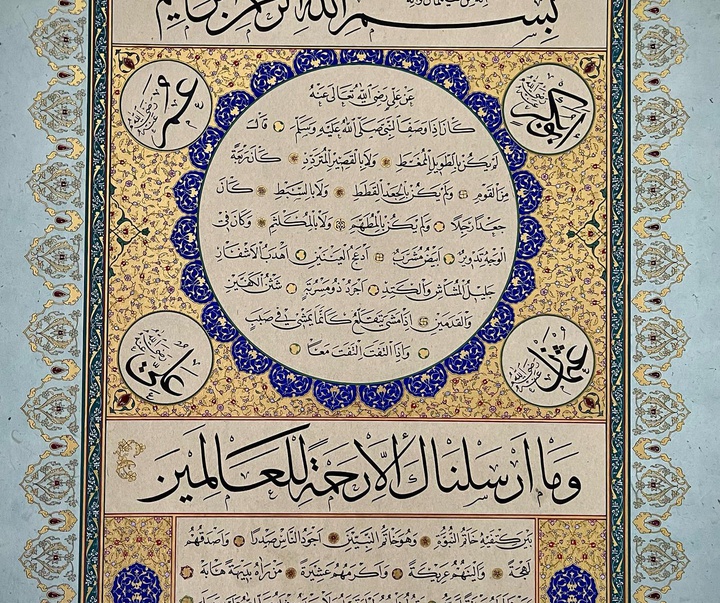 بِسْمِ اللهِ الرَّحْمٰنِ الرَّحِيمِ
ابوبكر رضي الله عنه
عمر رضي الله عنه
عن علي رضي الله تعالى عنه
كان اذا وصف النبي صلى الله عليه وسلم قال
لم يكن بالطويل الممغط ولا بالقصير المتردد كان ربعة
من القوم ولم يكن بالجعد القطط ولا بالسبط كان
جعدا رجلا ولم يكن بالمطهم ولا بالمكلثم وكان في
الوجه تدوير ابيض مشرب ادعج العينين اهدب الاشفار
جليل المشاش والكتد اجرد ذو مسربة شثن الكفين
والقدمين اذا مشى يتقلع كانما يمشي في صبب
واذا التفت التفت معا
عثمان رضي الله عنه
علي رضي الله عنه
وَمَا اَرْسَلْنَاكَ اِلَّا رَحْمَةً لِلْعَالَمِينَ
بين كتفيه خاتم النبوة وهو خاتم النبيين اجود الناس صدرا واصدقهم
لهجة والينهم عريكة واكرمهم عشيرة من رآه بديهة هابه